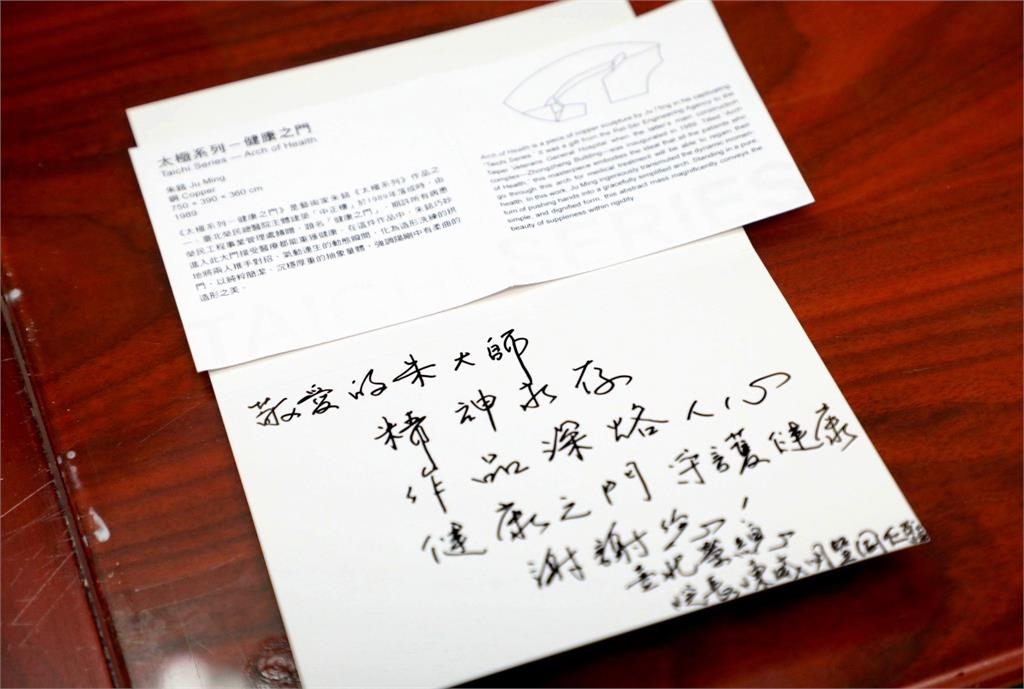 太極系列—健康之門
Taichi Series — Arch of Health
朱銘 Ju Ming
銅 Copper
750 × 390 × 360 cm
1989
《太極系列—健康之門》是藝術家朱銘《太極系列》作品之
一，臺北榮民總醫院主體建築「中正樓」於1989年落成時，由
榮民工程事業管理處轉贈，題名「健康之門」，期許所有病患
進入此大門接受醫療都能重獲健康。在這件作品中，朱銘巧妙
地將兩人推手對招、氣動連生的動態瞬間，化為造形洗練的拱
門，以純粹簡潔、沉穩厚重的抽象量體，強調陽剛中有柔曲的
造形之美。
Arch of Health is a piece of copper sculpture by Ju Ming in his captivating
"Taichi Series." It was a gift from the Ret-Ser Engineering Agency to the
Taipei Veterans General Hospital when the latter's main construction
complex—Zhongzheng Building—was inaugurated in 1989. Titled "Arch
of Health," this masterpiece embodies the ideal that all the patients who
go through this arch for medical treatment will be able to regain their
health. In this work, Ju Ming ingeniously transmuted the dynamic momen-
tum of pushing hands into a gracefully simplified arch. Standing in a pure,
simple, and dignified form, this abstract mass magnificently conveys the
beauty of suppleness within rigidity.
TAICHI SERIES
敬愛的朱大師
精神永存
作品深烙人心
健康之門 守護健康
謝謝您!
臺北榮總
院長陳威明暨同仁